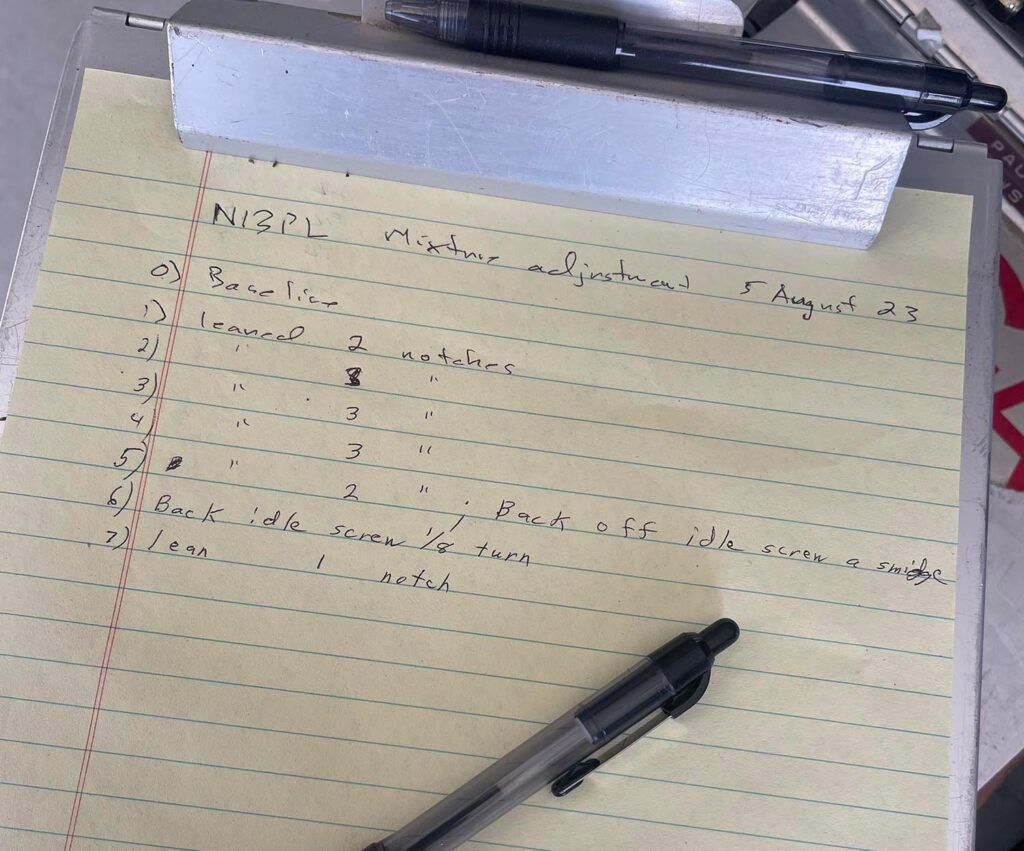 N13PL Mixture adjustment 5 August 23
0) Baseline
1) leaned 2 notches
2) " 3 "
3) " 3 "
4) " 3 "
5) " 2 " ; Back off idle screw a smidge
6) Back idle screw 1/8 turn
7) lean 1 notch